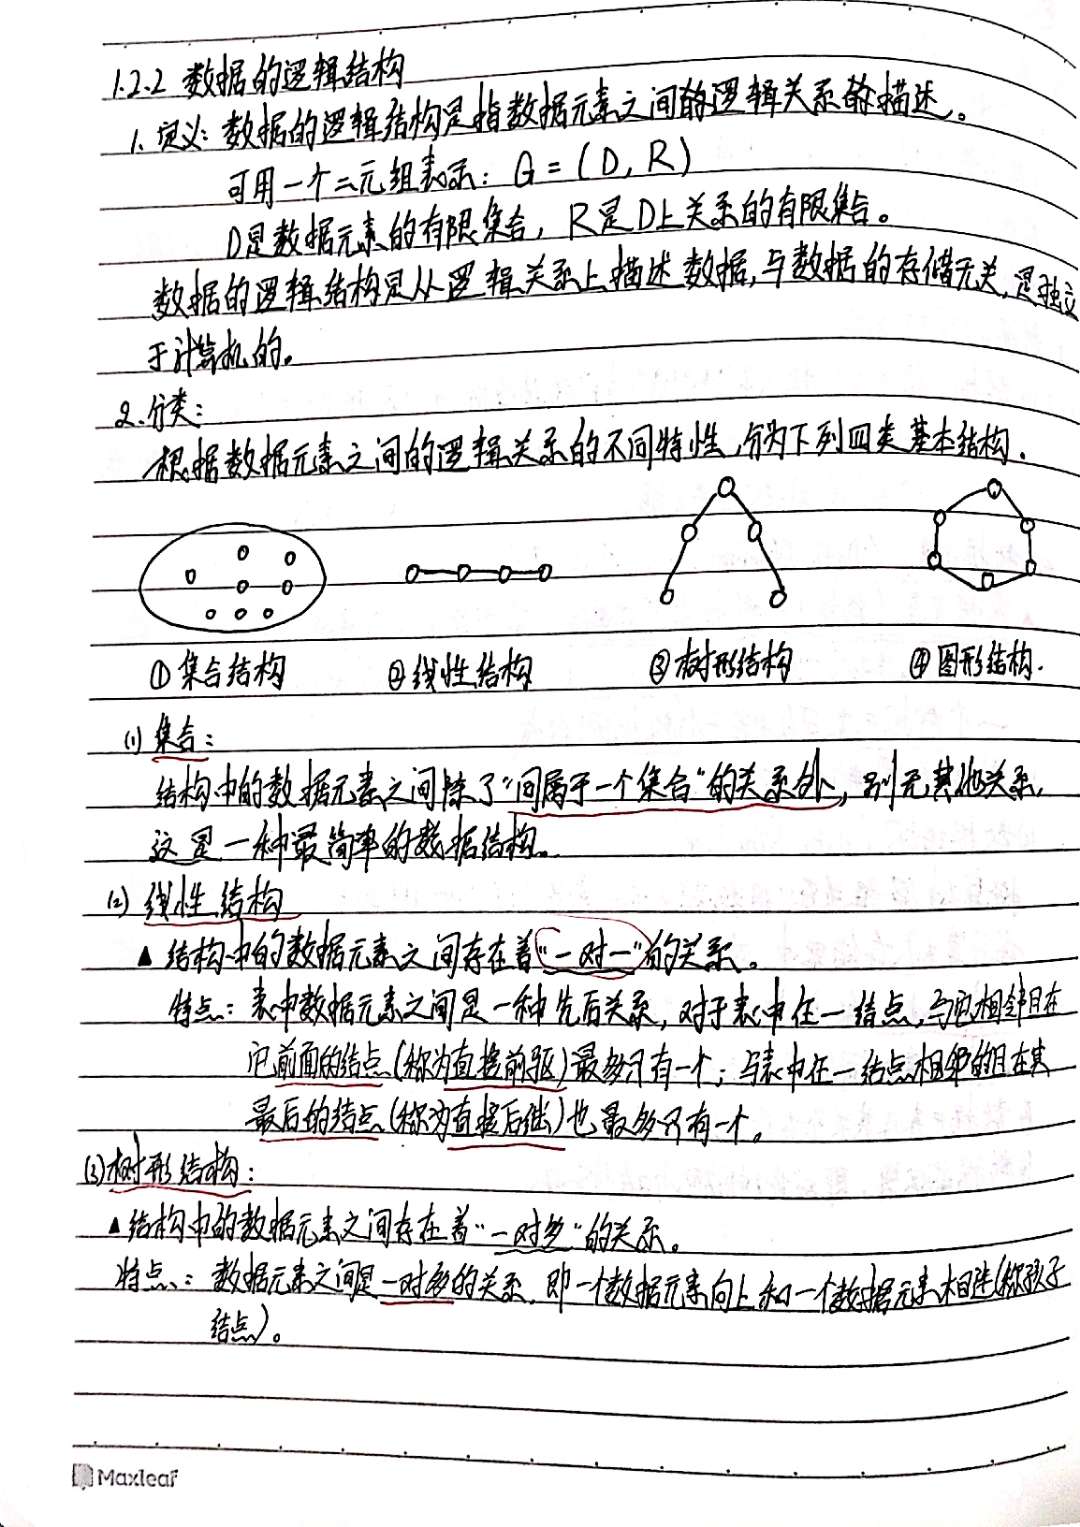 1.2.2 数据的逻辑结构
1、定义：数据的逻辑结构是指数据元素之间的逻辑关系的描述。
可用一个二元组表示：G = (D, R)
D是数据元素的有限集合，R是D上关系的有限集合。
数据的逻辑结构是从逻辑关系上描述数据，与数据的存储无关，是独立
于计算机的。
2.分类：
根据数据元素之间的逻辑关系的不同特性，分为下列四类基本结构.
①集合结构 ②线性结构 ③树形结构 ④图形结构.
(1) 集合：
结构中的数据元素之间除了“同属于一个集合”的关系外，别无其他关系，
这是一种最简单的数据结构。
(2) 线性结构
▲ 结构中的数据元素之间存在着“一对一”的关系。
特点：表中数据元素之间是一种先后关系，对于表中任一结点，与它相邻且在
它前面的结点(称为直接前驱)最多只有一个；与表中任一结点相邻的且在其
最后的结点(称为直接后继)也最多只有一个。
(3)树形结构：
▲结构中的数据元素之间存在着“一对多”的关系。
特点：数据元素之间是一对多的关系，即一个数据元素向上和一个数据元素相连(称孩子
结点)。
Maxleaf